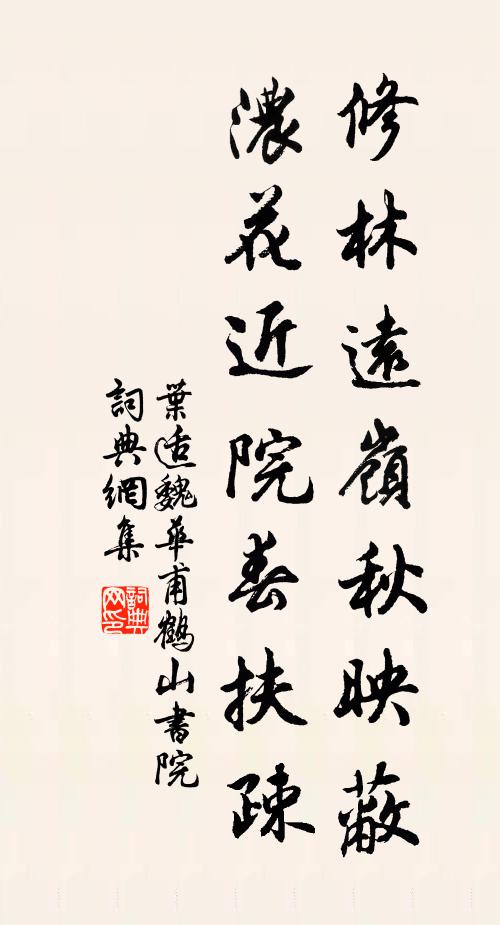 修林遠嶺秋映蔽
濃花近院春扶疎
葉適魏華甫鶴山書院
詞典網集
詞典网印